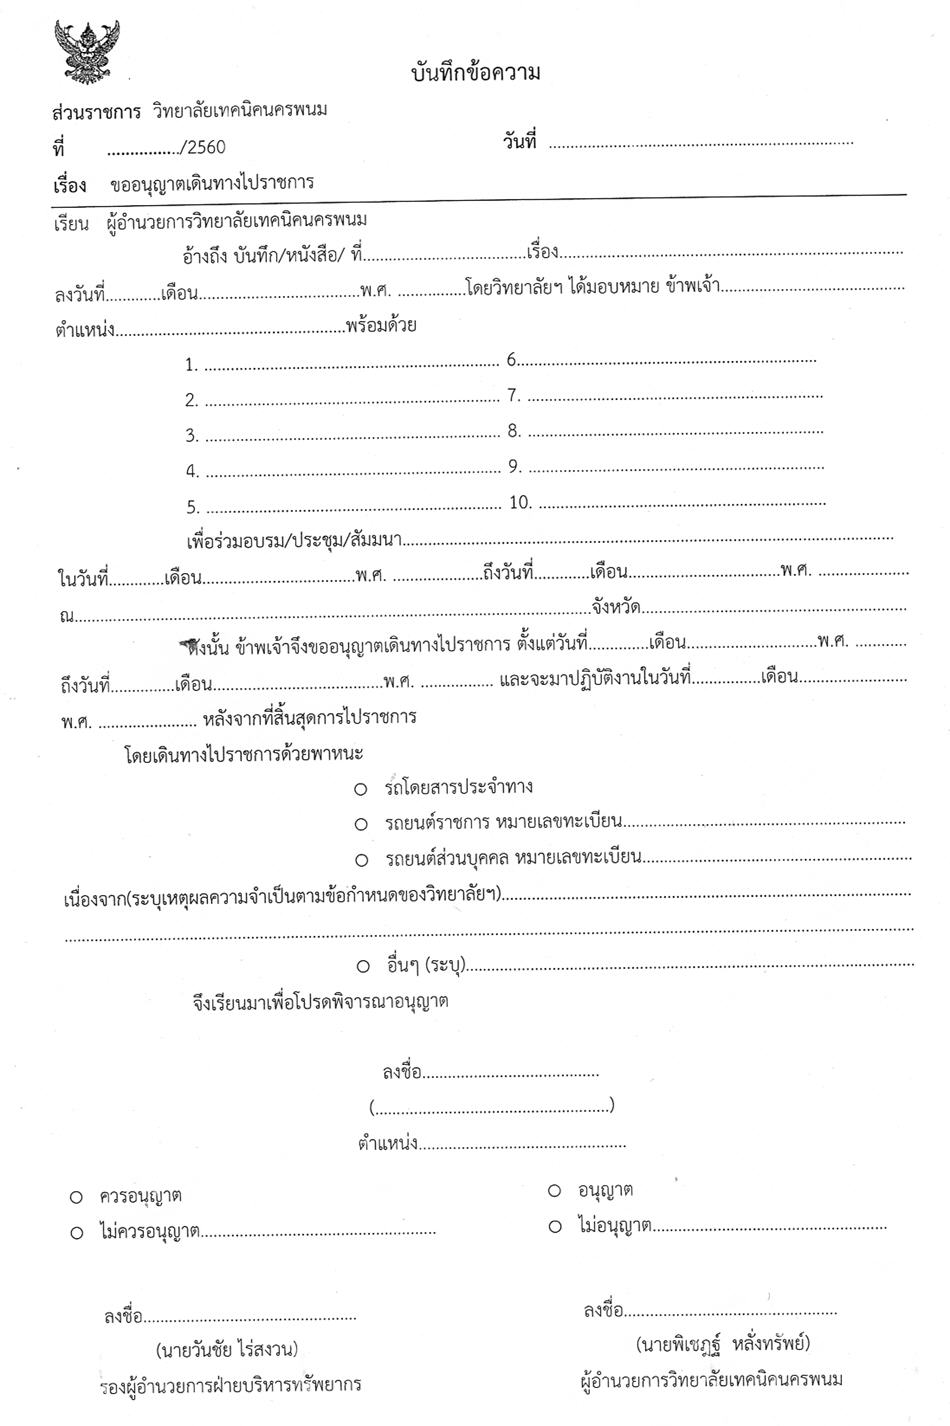 บันทึกข้อความ
ส่วนราชการ วิทยาลัยเทคนิคนครพนม
ที่ ................/2560 วันที่ ........................................................................
เรื่อง ขออนุญาตเดินทางไปราชการ
เรียน ผู้อำนวยการวิทยาลัยเทคนิคนครพนม
อ้างถึง บันทึก/หนังสือ/ ที่......................................เรื่อง................................................................................
ลงวันที่.............เดือน......................................พ.ศ. ................โดยวิทยาลัยฯ ได้มอบหมาย ข้าพเจ้า...........................................
ตำแหน่ง......................................................พร้อมด้วย
1. ...................................................................... 6......................................................................
2. ...................................................................... 7. ......................................................................
3. ...................................................................... 8. ......................................................................
4. ...................................................................... 9. ......................................................................
5. ...................................................................... 10. ...................................................................
เพื่อร่วมอบรม/ประชุม/สัมมนา....................................................................................................................
ในวันที่.............เดือน....................................พ.ศ. .....................ถึงวันที่.............เดือน....................................พ.ศ. .....................
ณ.........................................................................................................................จังหวัด..............................................................
ดังนั้น ข้าพเจ้าจึงขออนุญาตเดินทางไปราชการ ตั้งแต่วันที่..............เดือน...............................พ.ศ. ............
ถึงวันที่...............เดือน........................................พ.ศ. ................. และจะมาปฏิบัติงานในวันที่................เดือน..........................
พ.ศ. ....................... หลังจากที่สิ้นสุดการไปราชการ
โดยเดินทางไปราชการด้วยพาหนะ
○ รถโดยสารประจำทาง
○ รถยนต์ราชการ หมายเลขทะเบียน..................................................................
○ รถยนต์ส่วนบุคคล หมายเลขทะเบียน...............................................................
เนื่องจาก(ระบุเหตุผลความจำเป็นตามข้อกำหนดของวิทยาลัยฯ)................................................................................................
........................................................................................................................................................................................................
○ อื่นๆ (ระบุ).........................................................................................................
จึงเรียนมาเพื่อโปรดพิจารณาอนุญาต
ลงชื่อ..........................................
(.......................................................)
ตำแหน่ง.................................................
○ ควรอนุญาต ○ อนุญาต
○ ไม่ควรอนุญาต........................................................ ○ ไม่อนุญาต.......................................................
ลงชื่อ................................................... ลงชื่อ...................................................
(นายวันชัย ไร่สงวน) (นายพิเชฎฐ์ หลั่งทรัพย์)
รองผู้อำนวยการฝ่ายบริหารทรัพยากร ผู้อำนวยการวิทยาลัยเทคนิคนครพนม